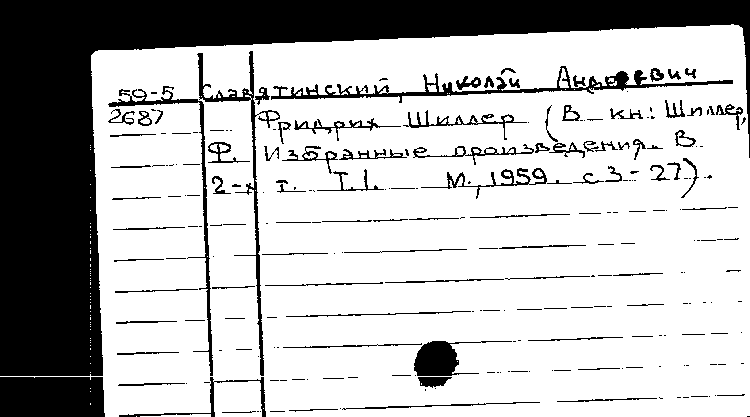 59-5 Славятинский, Николай Андреевич
2687 Фридрих Шиллер (В кн: Шиллер,
Ф. Избранные произведения. В
2-х т. Т.1. М., 1959. с 3-27).